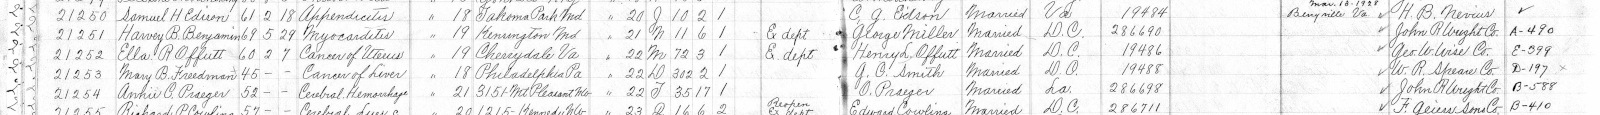 Mar. 13-1928
21250 Samuel H Edson 61 2 18 Appendicitis " 18 Takoma Park Md " 20 J 102 1 C. G. Edson Married Va 19484 Berryville Va. ✓ H. B. Nevius ✓
21251 Harvey B. Benjamin 69 5 29 Myocarditis " 19 Kensington Md " 21 N 116 1 Ex dept George Miller Married D.C. 286690 ✓ John R Wright Co. A-490
21252 Ella R Offutt 60 2 7 Cancer of Uterus " 19 Cherrydale Va " 22 M 723 1 Ex dept Henry L. Offutt Married D.C. 19486 ✓ Geo. W. Wise Co. E-399
21253 Mary B. Freedman 45 - - Cancer of Liver " 18 Philadelphia Pa " 22 D 302 2 1 G. C. Smith Married D.C. 19488 ✓ W. R. Speare Co. D-197 x
21254 Annie C. Praeger 52 - - Cerebral Hemorrhage " 21 3151-Mt Pleasant NW " 22 J 3517 1 O. Praeger Married La. 286698 ✓ John R Wright Co. B-588
21255 Richard P Cowling 57 - - Cerebral " 20 1215-Kennedy NW " 23 166 2 Reopen Ex dept Edward Cowling Married D.C. 286711 ✓ F. Geiers Sons Co. B-410